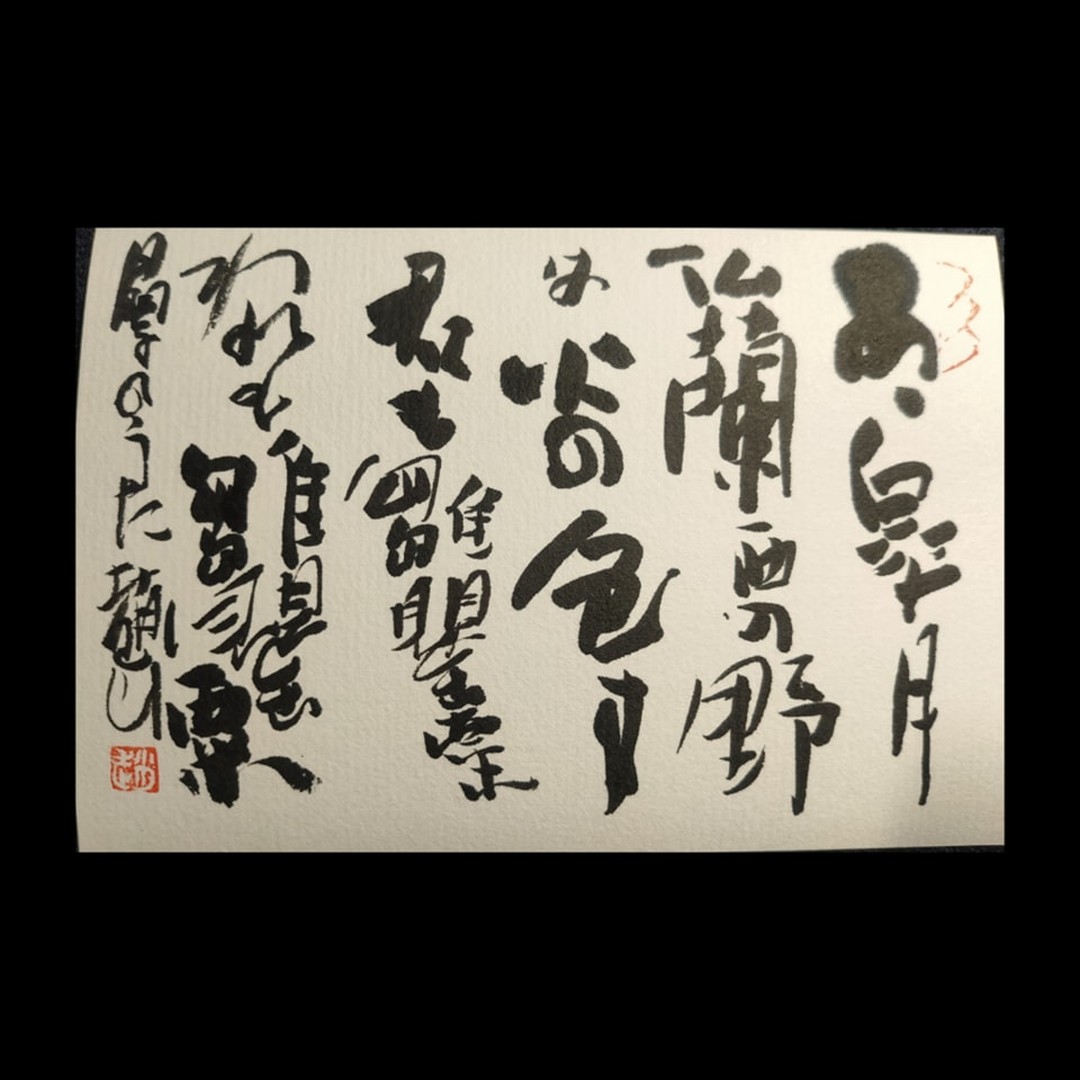 あゝ皐月
仏蘭西の野
は火の色す
君も雛罌粟
われも雛罌粟
晶子のうた